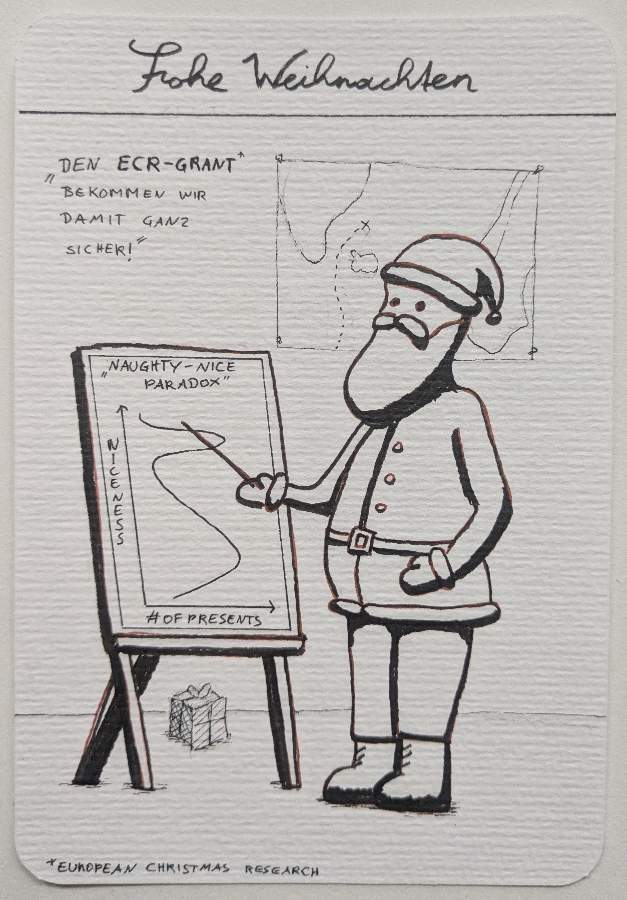 Frohe Weihnachten
„DEN ECR-GRANT*
BEKOMMEN WIR
DAMIT GANZ
SICHER!"
„NAUGHTY-NICE
PARADOX"
NICENESS
# OF PRESENTS
*EUROPEAN CHRISTMAS RESEARCH